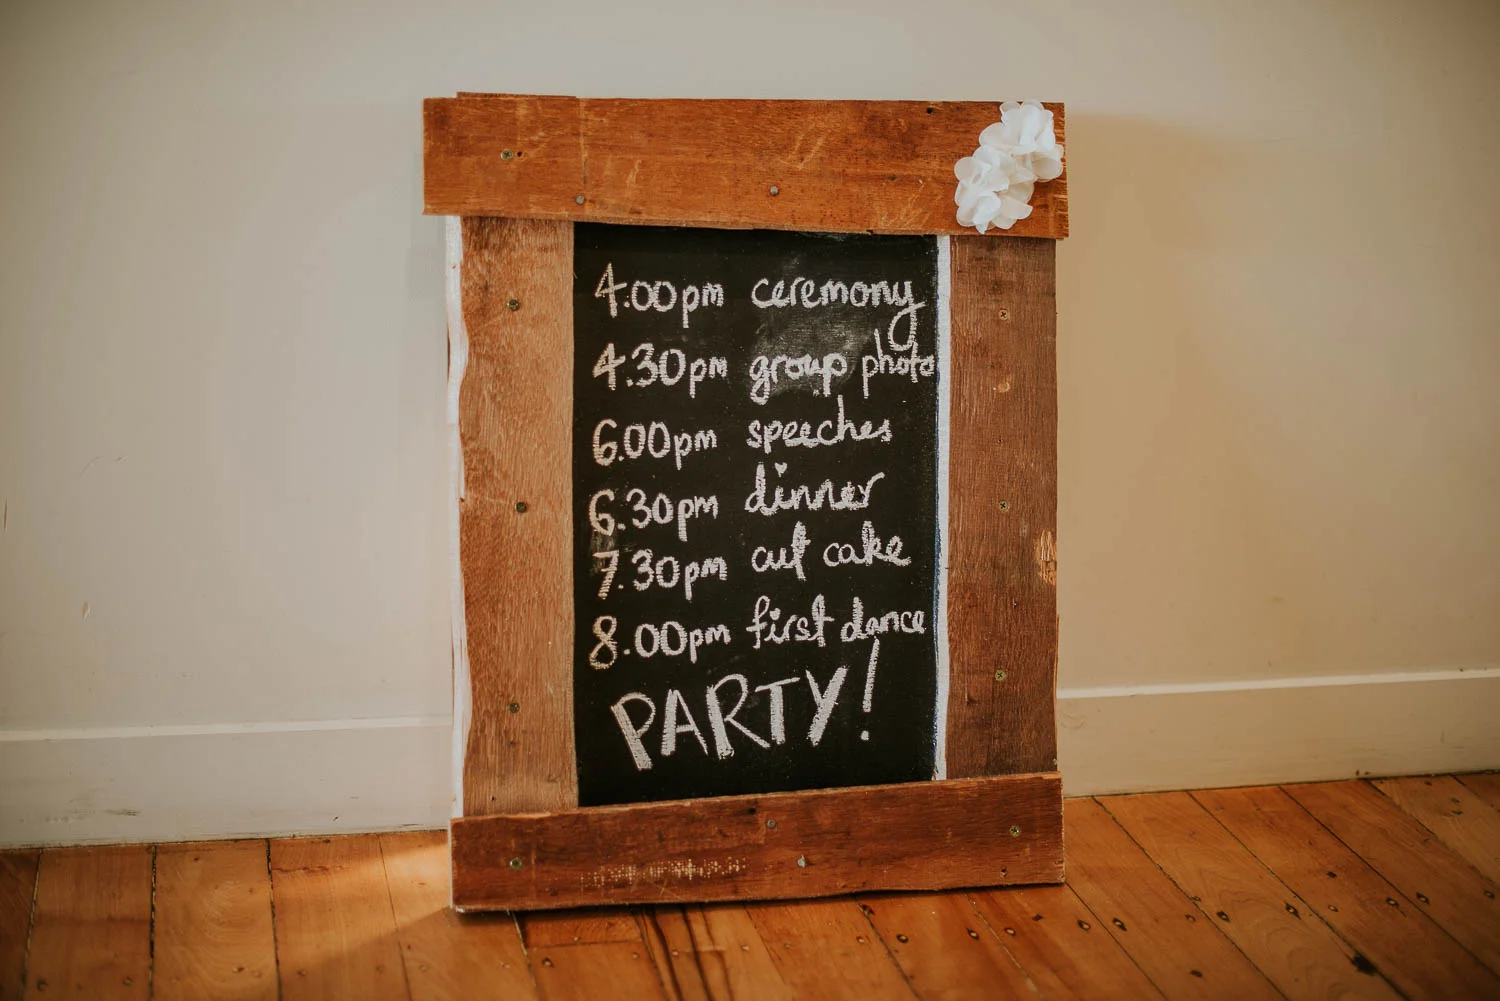 4.00pm ceremony
4.30pm group photo
6.00pm speeches
6.30pm dinner
7.30pm cut cake
8.00pm first dance
PARTY!